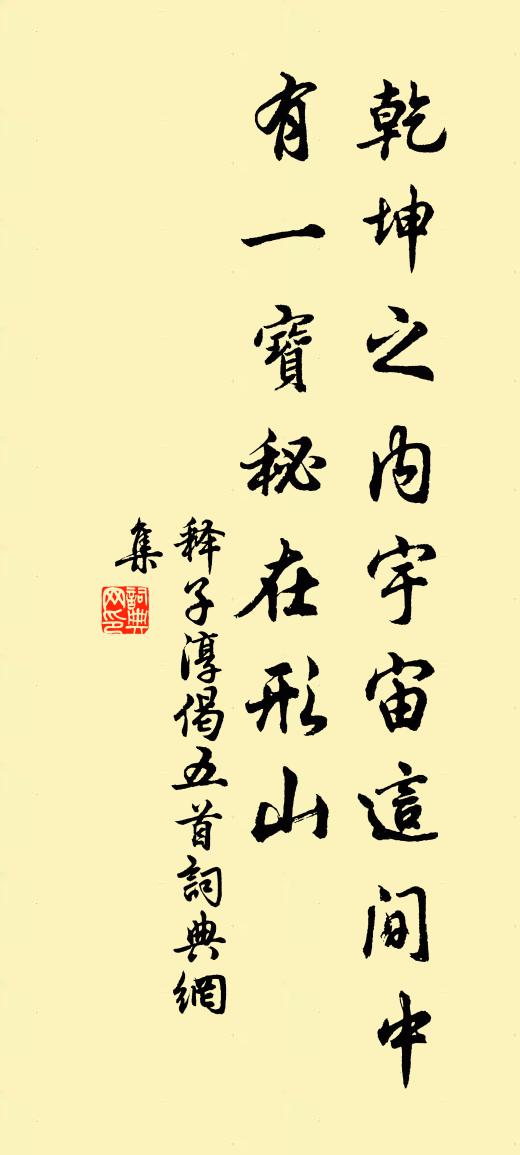 乾坤之内宇宙這间中
有一寶秘在形山
释子淳偈五首詞典網
集
詞典网印